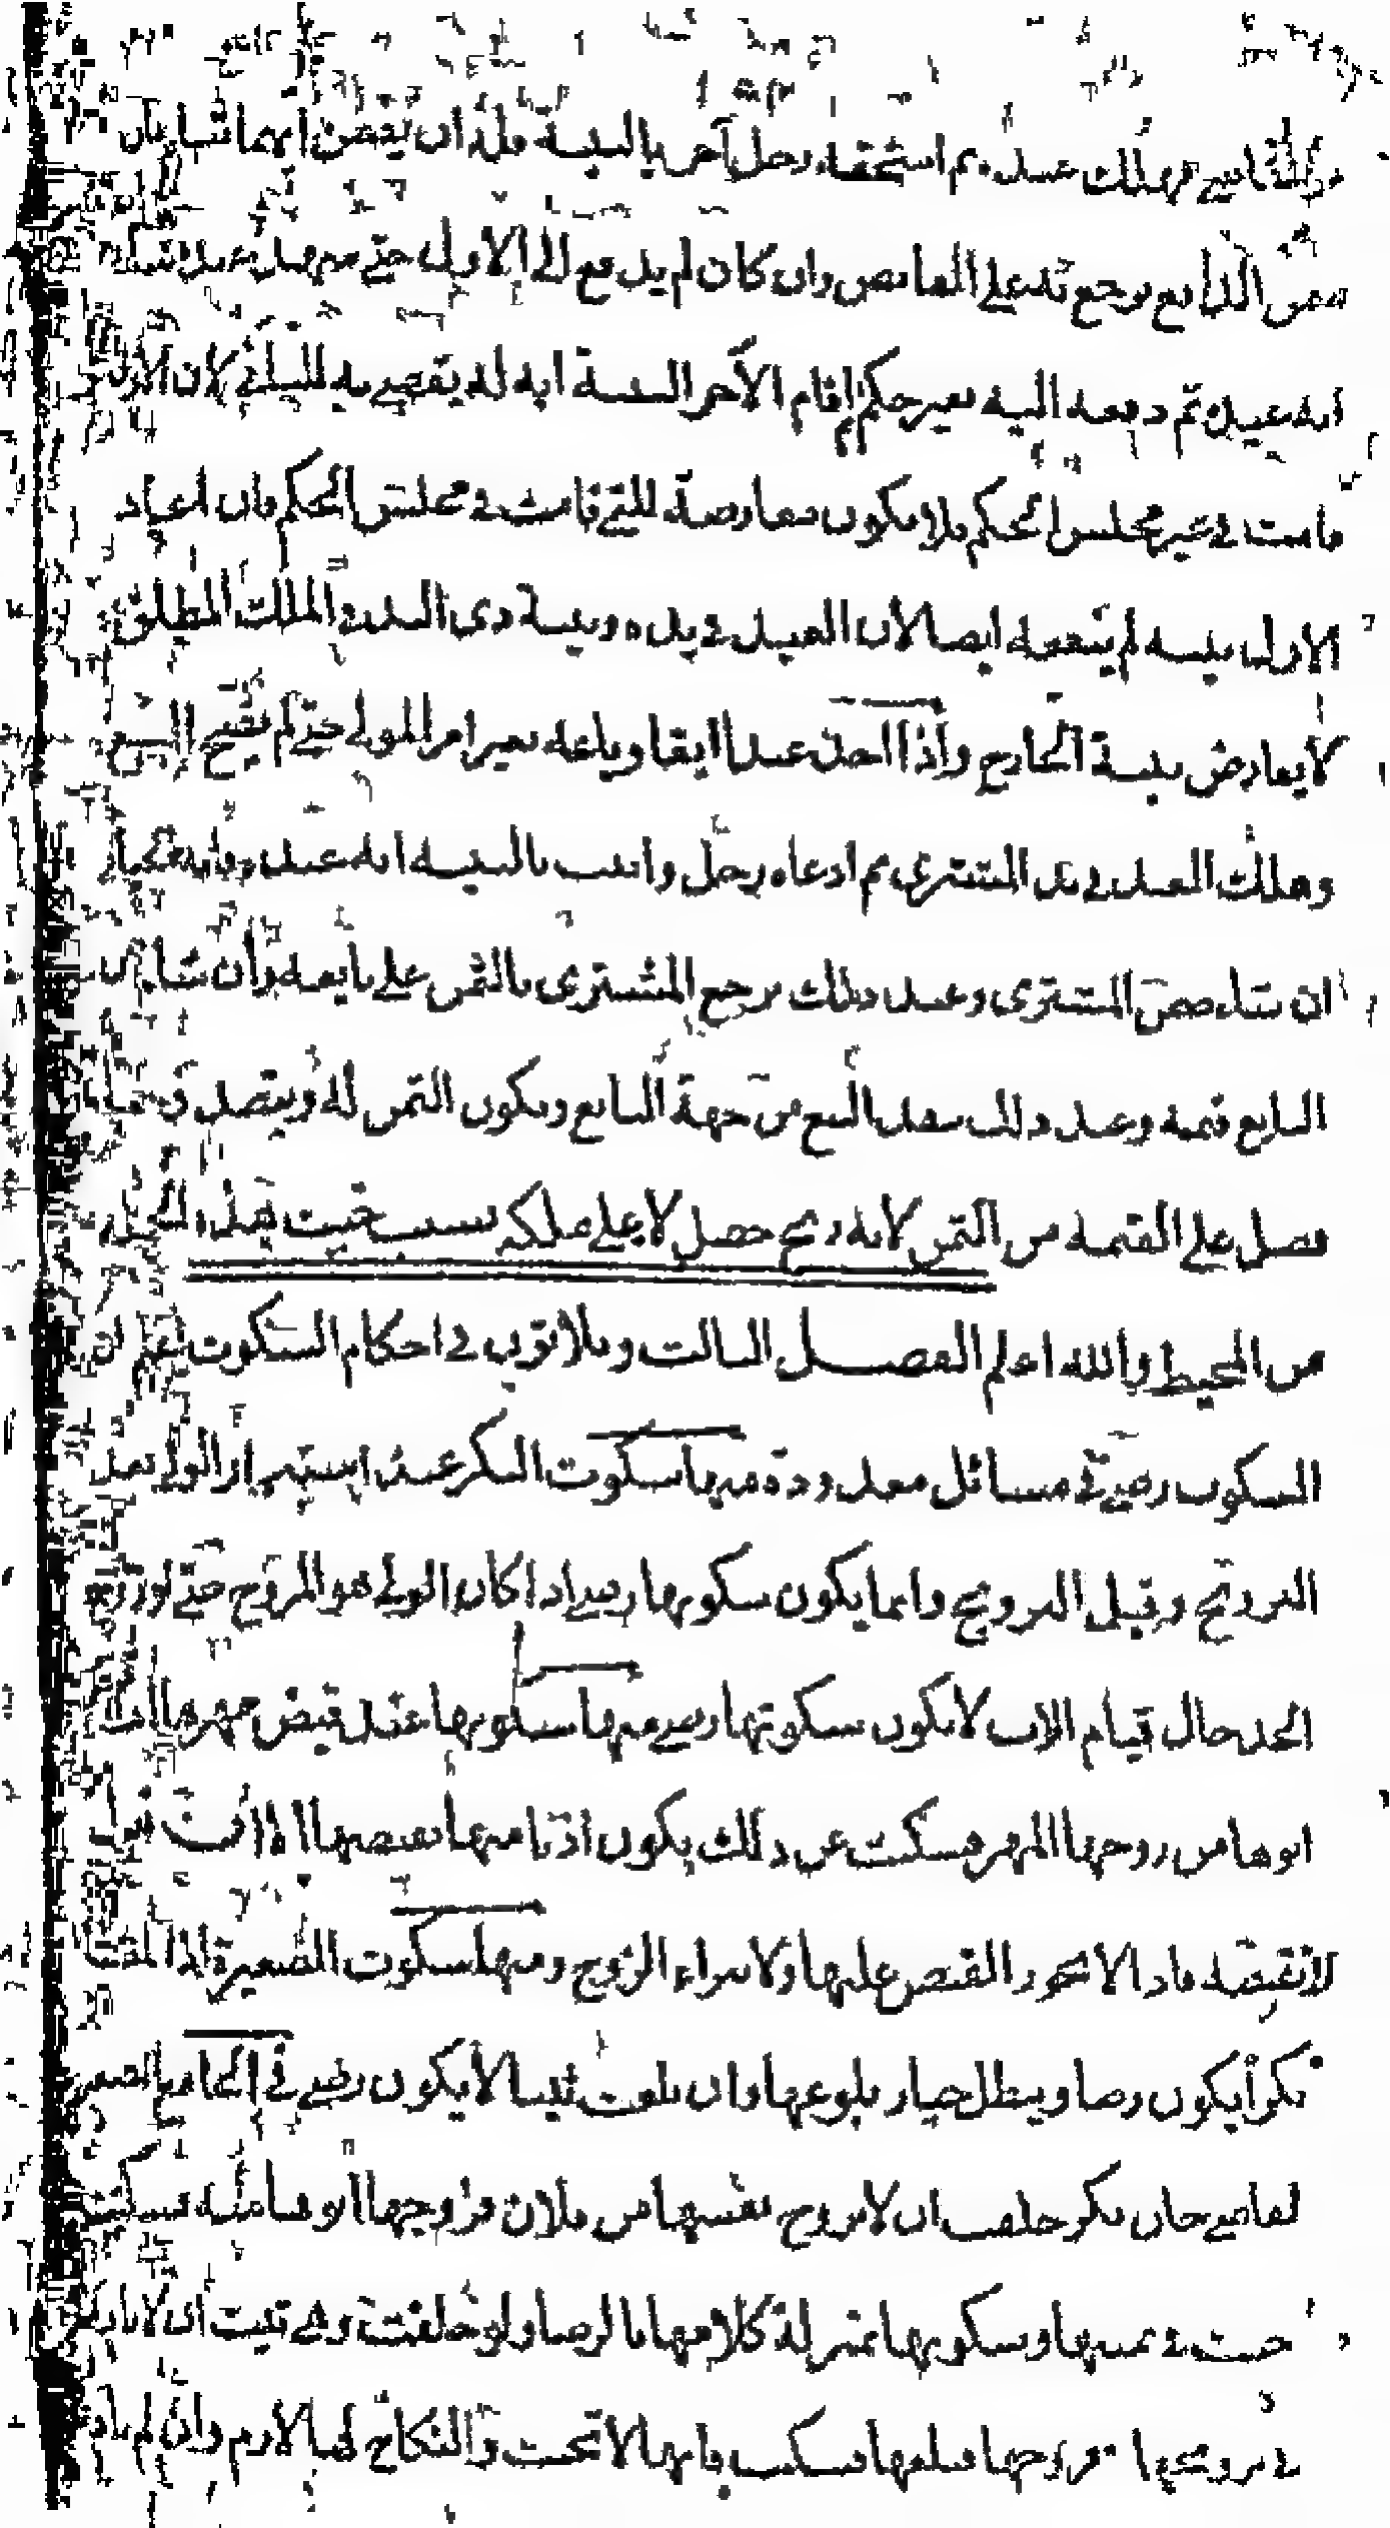 القاضي فهلك عنده ثم استحقه رجل آخر بالبينة فله ان يضمن ايهما شاء فان
ضمن الدافع يرجع به على القابض وان كان لم يدفع الى الاول حتى
انه عبده ثم دفعه اليه بغير حكم ثم اقام الآخر البينة انه له يقضى به للثاني لان الاول
قامت في غير مجلس الحكم فلا تكون معارضة للتي قامت في مجلس الحكم فان اعاد
الاول بينته لم ينفعه ايضا لان العبد في يده وبينة ذى اليد في الملك المطلق
لا يعارض بينة الخارج واذا اخذ عبدا ابقا وباعه بغير امر المولى حتى لم يصح البيع
وهلك العبد في يد المشترى ثم ادعاه رجل واثبت بالبينة انه عبده
ان شاء ضمن المشترى وعند ذلك يرجع المشترى بالثمن على بايعه وان شاء ضمن
البايع قيمته وعند ذلك ينفذ البيع من جهة البايع ويكون الثمن له ويتصدق بما
فضل على القيمة من الثمن لانه ربح حصل لا على ملكه بسبب خبيث هذه الجملة
من المحيط والله اعلم الفصل الثالث وثلاثون في احكام السكوت اعلم ان
السكوت رضى في مسائل معدودة منها سكوت البكر عند استيمار الولى بعد
التزويج وقبل التزويج وانما يكون سكوتها رضى اذا كان الولى هو المزوج حتى لو زوج
الجد حال قيام الاب لا يكون سكوتها رضى منها سكوتها عند قبض مهرها
ابوها من زوجها المهر فسكتت عن ذلك يكون اذنا منها بقبضها الا ان تقول
لا تقبضه فاذا لا يجوز القبض عليها ولا يبراء الزوج ومنها سكوت الصغيرة اذا بلغت
بكرا يكون رضا ويبطل خيار بلوغها وان بلغت ثيبا لا يكون رضى في الجامع الصغير
لقاضى خان بكر حلفت ان لا تزوج نفسها من فلان فزوجها ابوها منه فسكتت
حنثت في يمينها وسكوتها بمنزلة كلامها بالرضا ولو حلفت وهى ثيبت ان لا تاذن
في تزويجها فزوجها فبلغها فسكتت فانها لا تحنث والنكاح لها لازم وان لم